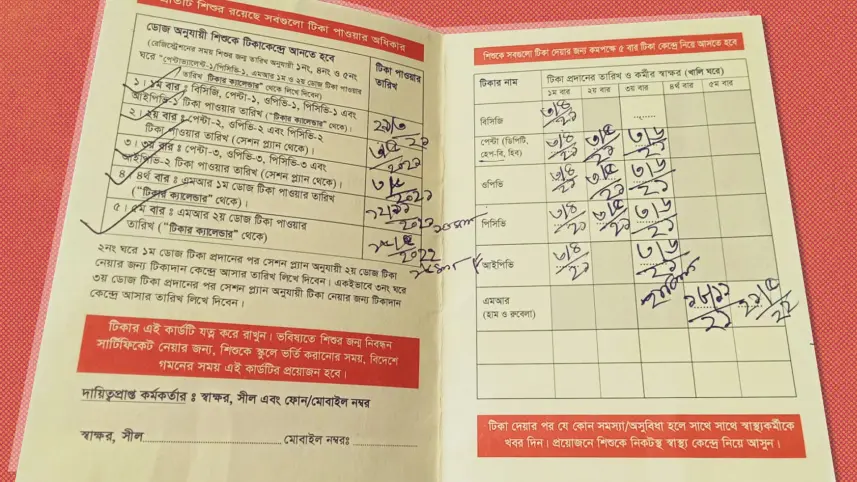 প্রতিটি শিশুর রয়েছে সবগুলো টিকা পাওয়ার অধিকার
ডোজ অনুযায়ী শিশুকে টিকাকেন্দ্রে আনতে হবে
(রেজিস্ট্রেশনের সময় শিশুর জন্ম তারিখ অনুযায়ী ১নং, ৪নং ও ৫নং
ঘরে "পেন্টাভ্যালেন্ট-১/পিসিভি-১, এমআর ১ম ও ২য় ডোজ টিকা পাওয়ার
তারিখ টিকার ক্যালেন্ডার" থেকে লিখে দিবেন)
টিকা পাওয়ার
তারিখ
১। ১ম বার : বিসিজি, পেন্টা-১, ওপিভি-১, পিসিভি-১ এবং
আইপিভি-১ টিকা পাওয়ার তারিখ ("টিকার ক্যালেন্ডার" থেকে)।
২। ২য় বার : পেন্টা-২, ওপিভি-২ এবং পিসিভি-২
টিকা পাওয়ার তারিখ (সেশন প্ল্যান থেকে)।
৩। ৩য় বার : পেন্টা-৩, ওপিভি-৩, পিসিভি-৩ এবং
আইপিভি-২ টিকা পাওয়ার তারিখ (সেশন প্ল্যান থেকে)।
2021
৪। ৪র্থ বার : এমআর ১ম ডোজ টিকা পাওয়ার তারিখ
("টিকার ক্যালেন্ডার" থেকে)।
2021
৫। ৫ম বার : এমআর ২য় ডোজ টিকা পাওয়ার
তারিখ ("টিকার ক্যালেন্ডার" থেকে)
2022
২নং ঘরে ১ম ডোজ টিকা প্রদানের পর সেশন প্ল্যান অনুযায়ী ২য় ডোজ টিকা
নেয়ার জন্য টিকাদান কেন্দ্রে আসার তারিখ লিখে দিবেন। একইভাবে ৩নং ঘরে
৩য় ডোজ টিকা প্রদানের পর সেশন প্ল্যান অনুযায়ী টিকা নেয়ার জন্য টিকাদান
কেন্দ্রে আসার তারিখ লিখে দিবেন।
টিকার এই কার্ডটি যত্ন করে রাখুন। ভবিষ্যতে শিশুর জন্ম নিবন্ধন
সার্টিফিকেট নেয়ার জন্য, শিশুকে স্কুলে ভর্তি করানোর সময়, বিদেশে
গমনের সময় এই কার্ডটির প্রয়োজন হবে।
দায়িত্বপ্রাপ্ত কর্মকর্তার : স্বাক্ষর, সীল এবং ফোন/মোবাইল নম্বর
স্বাক্ষর, সীল.............................. মোবাইল নম্বরঃ ....................
শিশুকে সবগুলো টিকা দেয়ার জন্য কমপক্ষে ৫ বার টিকা কেন্দ্রে নিয়ে আসতে হবে
টিকার নাম
টিকা প্রদানের তারিখ ও কর্মীর স্বাক্ষর (খালি ঘরে)
১ম বার ২য় বার ৩য় বার ৪র্থ বার ৫ম বার
বিসিজি ৩/৪/২১
পেন্টা (ডিপিটি,
হেপ-বি, হিব) ৩/৪/২১ ৩/৫/২১ ৩/৬/২১
ওপিভি ৩/৪/২১ ৩/৫/২১ ৩/৬/২১
পিসিভি ৩/৪/২১ ৩/৫/২১ ৩/৬/২১
আইপিভি ৩/৪/২১ ৩/৬/২১
এমআর
(হাম ও রুবেলা)
টিকা দেয়ার পর যে কোন সমস্যা/অসুবিধা হলে সাথে সাথে স্বাস্থ্যকর্মীকে
খবর দিন। প্রয়োজনে শিশুকে নিকটস্থ স্বাস্থ্য কেন্দ্রে নিয়ে আসুন।